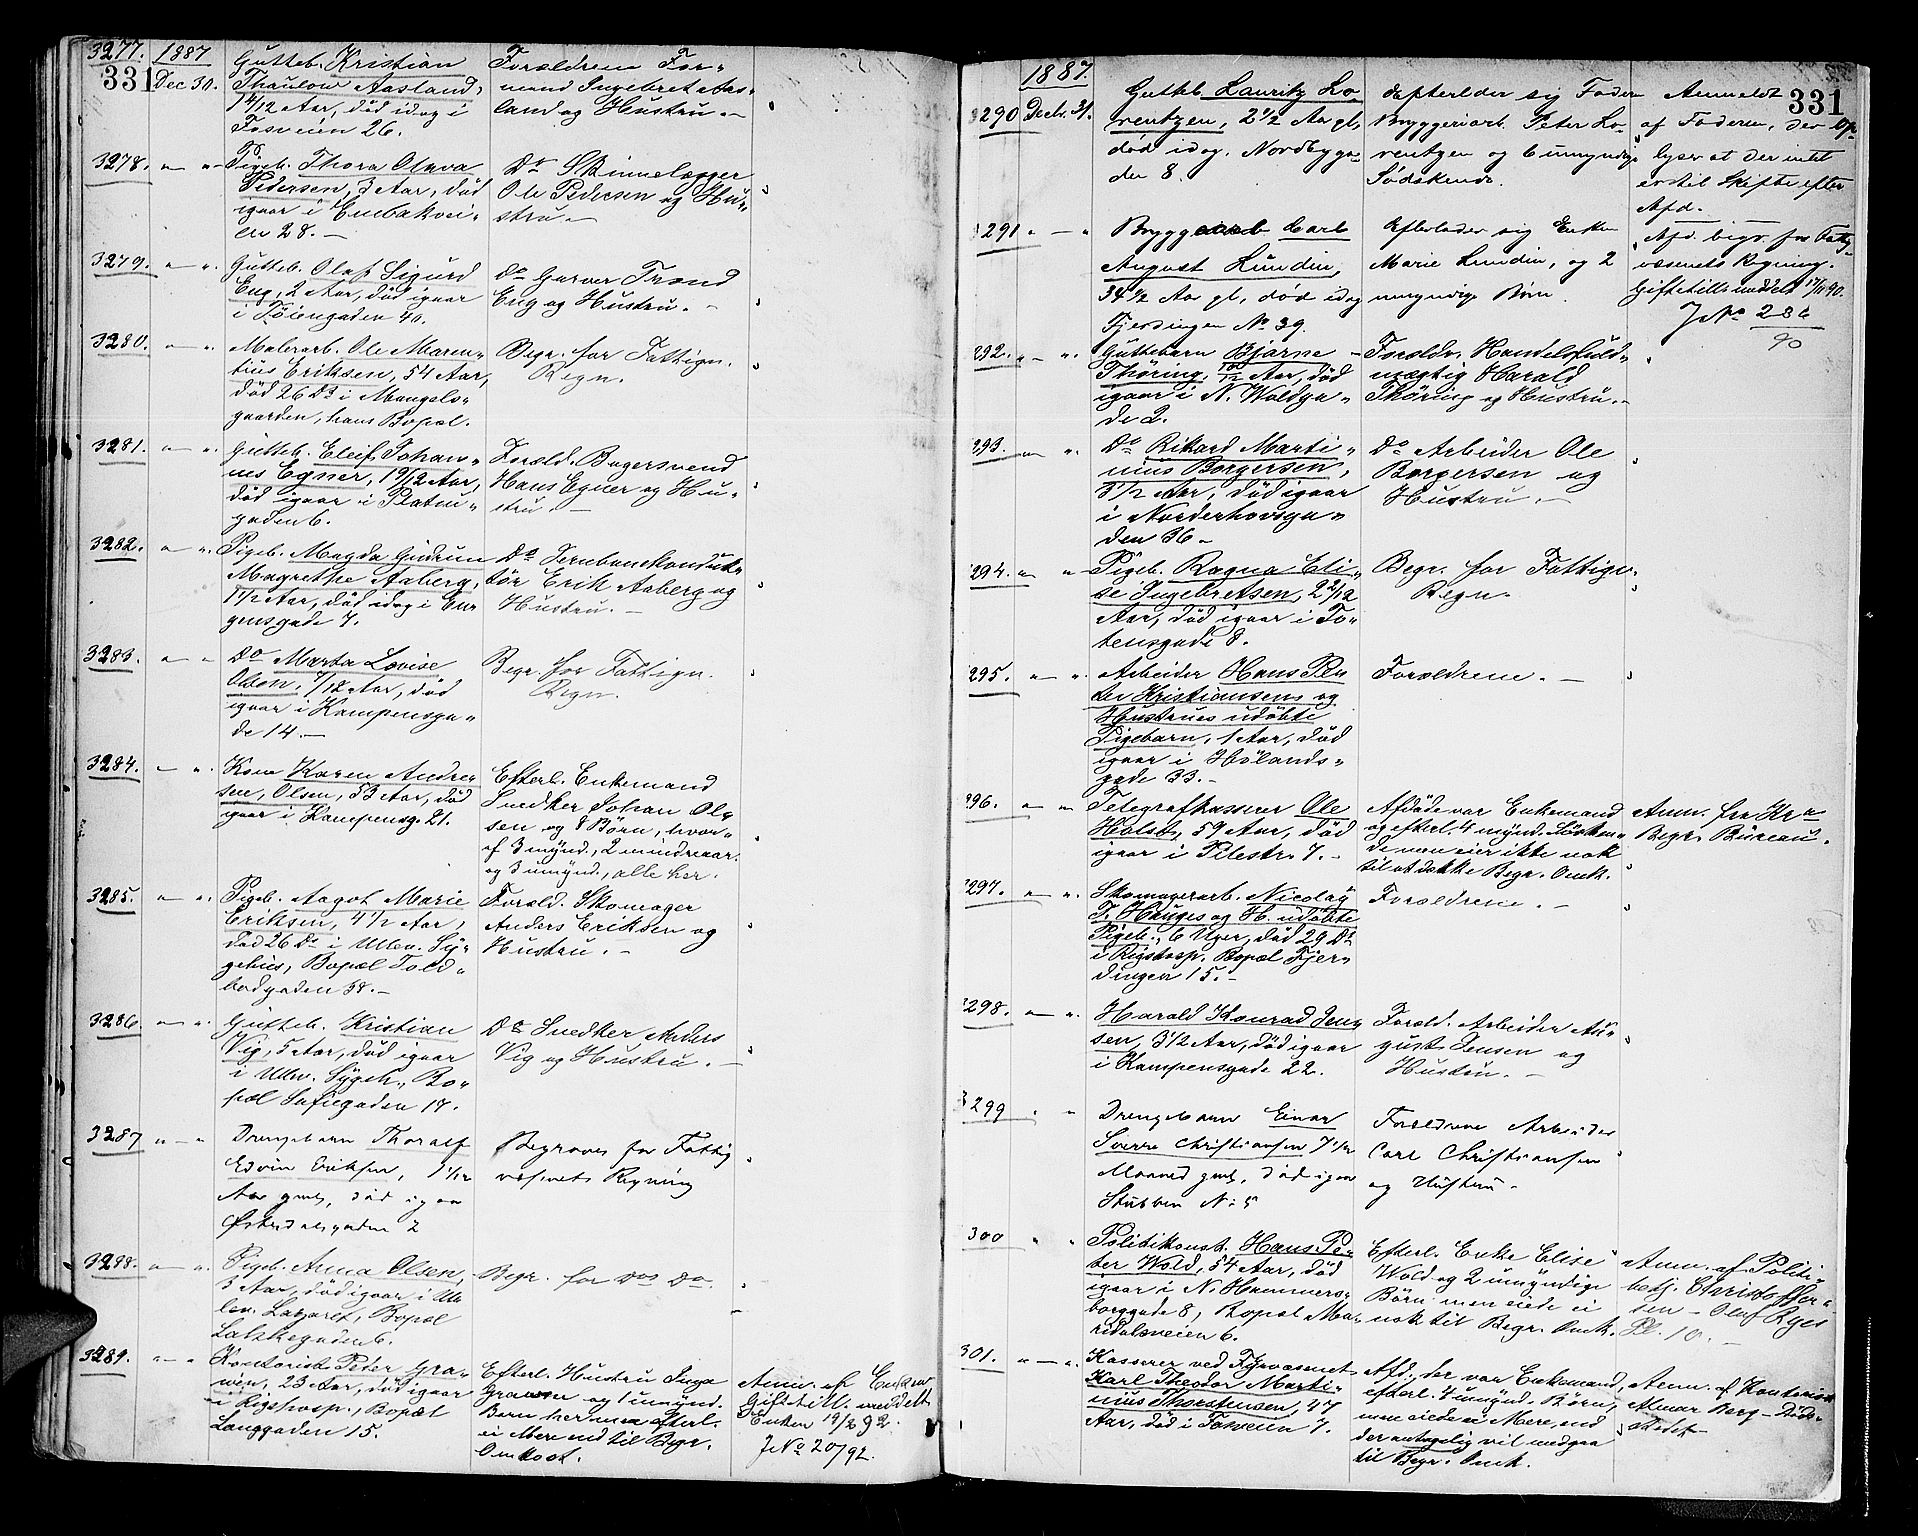 331
3277. 1887 Dec 30.
Gutteb. Kristian
Thaulow Aasland,
1 4/12 Aar, död idag i
Fosveien 26.
Forældrene For-
mand Ingebret Aas-
land og Hustru.-
3278. " — "
Pigeb. Thora Olava
Pedersen, 3 Aar, död
igaar i Enebakvei-
en 28.-
Do Skinnelægger
Ole Pedersen og Hu-
stru.-
3279. " — "
Gutteb. Olaf Sigurd
Eng, 2 Aar, död igaar
i Töiengaden 40.
Do Garver Trond
Eng og Hustru.-
3280. " — "
Malerarb. Ole Maren-
tius Eriksen, 54 Aar,
död 26 Ds i Mangels-
gaarden, hans Bopæl.
Begr. for Fattigv.
Regn.
3281. " — "
Gutteb. Eleif Johan-
nes Egner, 1 9/12 Aar,
död igaar i Platou-
gaden 6.
Foræld. Bagersvend
Hans Egner og Hu-
stru.-
3282. " — "
Pigeb. Magda Gudrun
Magrethe Aaberg,
1 1/2 Aar, död idag i Eu-
gensgade 7.
Do Jernbanekonduk-
tör Erik Aaberg og
Hustru.-
3283. " — "
Do Marta Lovise
Olson, 7/12 Aar, död
igaar i Kampensga-
de 14.-
Begr. for Fattigv.
Regn.
3284. " — "
Kone Karen Andre-
sen, Olsen, 53 Aar, död
igaar i Kampensg. 21.
Efterl. Enkemand
Snedker Johan Ol-
sen og 8 Börn, hvor-
af 3 mynd., 2 mindreaar.
og 3 umynd., alle her.
3285. " — "
Pigeb. Aagot Marie
Eriksen, 4 1/2 Aar,
död 26 Ds i Ullev. Sy-
gehus, Bopæl Told-
bodgaden 38.-
Foræld. Skomager
Anders Eriksen og
Hustru.-
3286. " — "
Gutteb. Kristian
Vig, 5 Aar, död igaar
i Ullev. Sygeh., Bo-
pæl Sofiegaden 17.
Do Snedker Anders
Vig og Hustru.-
3287 " — "
Drengebarn Thoralf
Edvin Eriksen, 1 1/12
Aar gml, död igaar
Østerdalsgaden 2
Begraves for Fattig
væsnets Regning
3288. " — "
Pigeb. Anna Olsen,
3 Aar, död igaar i Ul-
lev. Lazaret, Bopæl
Lakkegaden 6.
Begr. for Dos Do.
3289. " — "
Kontorist Peter Gra-
nen, 23 Aar, död igaar
i Rigshosp., Bopæl
Langgaden 15.
Efterl. Hustru Inga
Granen og 1 umynd.
Barn her men efterl.
ei Mere end til Begr.
Omkost.
Anm. af Enken
Giftetill. meddelt
Enken 19/2 92.
J No 20/92.
331
1887.
3290 Decb. 31.
Gutteb. Lauritz Lo-
rentzen, 2 1/2 Aar gl,
död idag. Nordbyga-
den 8.
efterlader sig Fader
Bryggeriarb. Peter Lo-
rentzen og 6 umyndige
Södskende.
Anmeldt
af Faderen, der op-
lyser at der intet
er til Skifte efter
Afd.
3291 " — "
Bryggearb Carl
August Lundin,
34 1/2 Aar gl, död idag
Fjerdingen No 39.
Efterlader sig Enken
Marie Lundin, og 2
umyndige Börn.
Afd. begr. for Fattig-
væsenets Regning.
Giftetill. meddelt 17/11 90.
J No 286
90
292. " — "
Guttebarn Bjarne
Thöring, 10/12 Aar, död
igaar i N. Woldga-
de 2.
Foreldr. Handelsfuld-
mægtig Harald
Thöring og Hustru.-
293. " — "
Do Rikard Marti-
nius Borgersen,
3 1/2 Aar, död igaar
i Norderhovsga-
den 36-
Do Arbeider Ole
Borgersen og
Hustru.-
294. " — "
Pigeb. Ragna Eli-
se Ingebretsen, 2 2/12
Aar, död igaar i To-
tensgade 8.
Begr. for Fattigv.
Regn.
295. " — "
Arbeider Hans Pe-
ter Kristiansens og
Hustrues udöbte
Pigebarn, 1 Aar, död
igaar i Hölands-
gade 33.-
Forældrene.-
296. " — "
Telegrafkasserer Ole
Holst, 59 Aar, död
igaar i Pilestr. 7.-
Afdöde var Enkemand
og efterl. 4 mynd. Sösken-
de men eier ikke nok
til at dække Begr. Omk.
Anm. fra Kr a
Begr. Büreau.
297. " — "
Skomagerarb. Nicolay
T. Hauges og H. udöbte
Pigeb., 6 Uger, död 29 Ds
i Rigshosp. Bopæl Fjer-
dingen 15.-
Forældrene.-
3298. " — "
Harald Konrad Jen-
sen, 3 1/2 Aar, död igaar
i Kampensgade 22.
Foræld. Arbeider Au-
gust Jensen og
Hustru.-
3299 " "
Drengebarn Einar
Sverre Christiansen 7 1/2
Maaned gml, död igaar
Stubben No 5
Foreldrene Arbeider
Carl Christiansen
og Hustru-
300 " "
Politikonst. Hans Pe-
ter Wold, 54 Aar, död
igaar i N. Hammers-
borggade 8, Bopæl Ma-
ridalsveien 6.
Efterl. Enke Elise
Wold og 2 umyndige
Börn men eiede ei
nok til Begr. Omk.
Anm. af Politi-
betj. Christoffer-
sen - Oluf Ryes
Pl. 10.-
301. " — "
Kasserer ved Fyrvæsenet
Karl Theodor Marti-
nius Thorstensen, 47
Aar, död i Fosveien 7.
Afd., der var Enkemand,
efterl. 4 umynd. Börn,
men eiede ei Mere, end
der antagelig vil medgaa
til Begr. Omk.
Anm. af Kontorist
Almar Berg - Döds-
stedet-